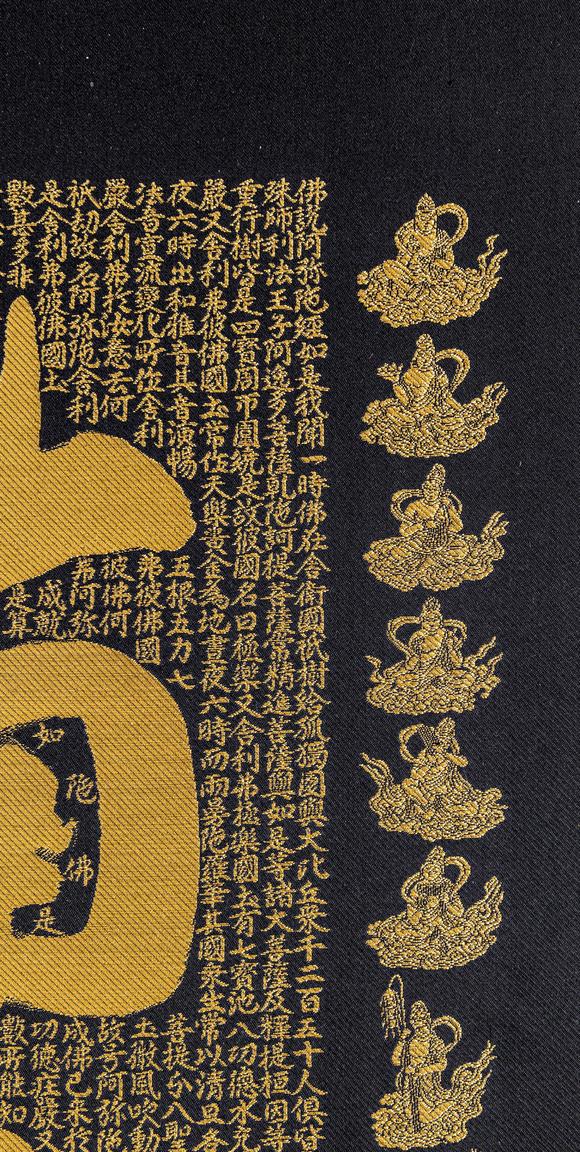 佛說阿弥陀經如是我聞一時佛在舍衛國祇樹給孤獨園與大比丘衆千二百五十人俱皆
殊師利法王子阿逸多菩薩乹陀訶提菩薩常精進菩薩與如是等諸大菩薩及釋提桓因等
重行樹皆是四寳周帀圍繞是故彼國名曰極樂又舍利弗極樂國土有七寳池八功德水充
嚴又舍利弗彼佛國土常作天樂黄金為地晝夜六時而雨曼陀羅華其國衆生常以清旦各
夜六時出和雅音其音演暢五根五力七菩提分八聖
法音宣流變化所作舍利弗彼佛國土微風吹動
嚴舍利弗於汝意云何彼佛何故号阿弥陀
祇劫故名阿弥陀舍利弗阿弥陀佛成佛已来於
是舍利弗彼佛國土成就如是功德荘嚴又
數甚多非是算數所能知